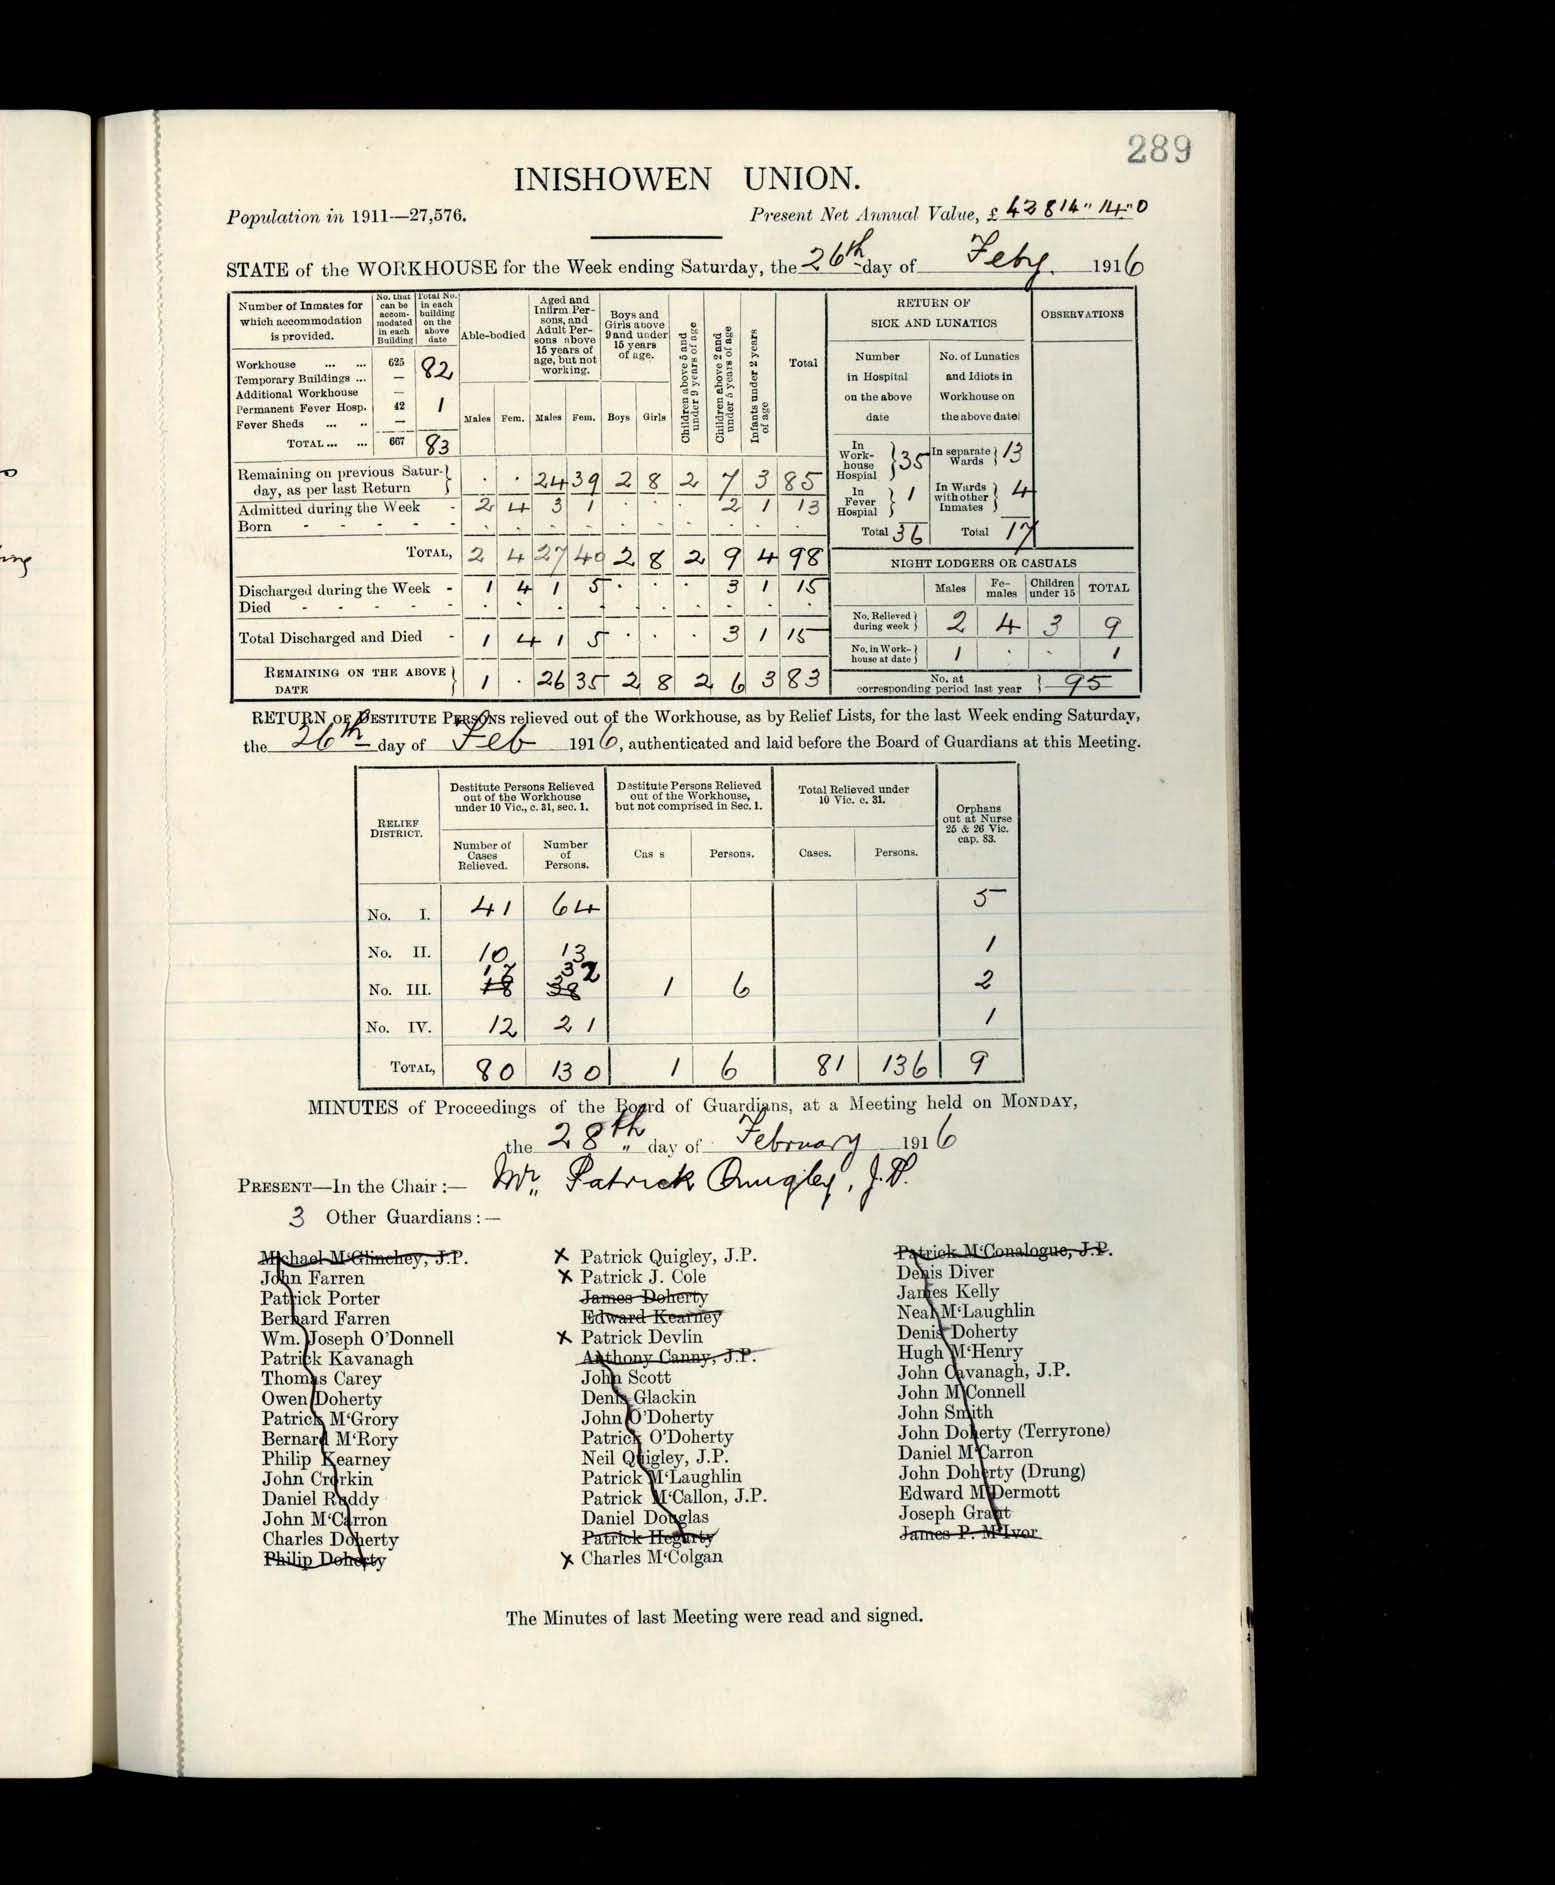 289
INISHOWEN UNION.
Population in 1911—27,576. Present Net Annual Value, £42814"14"0
STATE of the WORKHOUSE for the Week ending Saturday, the 26th day of Feby. 1916
Number of Inmates for which accommodation is provided. No. that can be accom- modated in each Building Total No. in each building on the above date
Able-bodied Aged and Infirm Per- sons, and Adult Per- sons above 15 years of age, but not working. Boys and Girls above 9 and under 15 years of age. Children above 5 and under 9 years of age Children above 2 and under 5 years of age Infants under 2 years of age Total
Males Fem. Males Fem. Boys Girls
Workhouse ... ... 625 82
Temporary Buildings ... —
Additional Workhouse —
Permanent Fever Hosp. 42 1
Fever Sheds ... .. —
TOTAL ... ... 667 83
Remaining on previous Satur- day, as per last Return } . . 24 39 2 8 2 7 3 85
Admitted during the Week - 2 4 3 1 . . . 2 1 13
Born - - - - - . . . . . . . . . .
TOTAL, 2 4 27 40 2 8 2 9 4 98
Discharged during the Week - 1 4 1 5 . . . 3 1 15
Died - - - - - . . . . . . . . . .
Total Discharged and Died - 1 4 1 5 . . . 3 1 15
REMAINING ON THE ABOVE DATE } 1 . 26 35 2 8 2 6 3 83
RETURN OF SICK AND LUNATICS
OBSERVATIONS
Number in Hospital on the above date No. of Lunatics and Idiots in Workhouse on the above date
In Work- house Hospial } 35 In separate Wards } 13
In Fever Hospial } 1 In Wards with other Inmates } 4
Total 36 Total 17
NIGHT LODGERS OR CASUALS
Males Fe- males Children under 15 TOTAL
No. Relieved during week } 2 4 3 9
No. in Work- house at date } 1 . . 1
No. at corresponding period last year } 95
RETURN OF DESTITUTE PERSONS relieved out of the Workhouse, as by Relief Lists, for the last Week ending Saturday,
the 26th day of Feb 1916, authenticated and laid before the Board of Guardians at this Meeting.
RELIEF DISTRICT. Destitute Persons Relieved out of the Workhouse under 10 Vic., c. 31, sec. 1. Destitute Persons Relieved out of the Workhouse, but not comprised in Sec. 1. Total Relieved under 10 Vic. c. 31. Orphans out at Nurse 25 & 26 Vic. cap. 83.
Number of Cases Relieved. Number of Persons. Cas s Persons. Cases. Persons.
No. I. 41 64 5
No. II. 10 13 1
17 32
No. III. 18 38 1 6 2
No. IV. 12 21 1
TOTAL, 80 130 1 6 81 136 9
MINUTES of Proceedings of the Board of Guardians, at a Meeting held on MONDAY,
the 28th day of February 1916
PRESENT—In the Chair :— Mr. Patrick Quigley, J.P.
3 Other Guardians :—
Michael M'Glinchey, J.P.
John Farren
Patrick Porter
Bernard Farren
Wm. Joseph O'Donnell
Patrick Kavanagh
Thomas Carey
Owen Doherty
Patrick M'Grory
Bernard M'Rory
Philip Kearney
John Crorkin
Daniel Ruddy
John M'Carron
Charles Doherty
Philip Doherty
x Patrick Quigley, J.P.
x Patrick J. Cole
James Doherty
Edward Kearney
x Patrick Devlin
Anthony Canny, J.P.
John Scott
Denis Glackin
John O'Doherty
Patrick O'Doherty
Neil Quigley, J.P.
Patrick M'Laughlin
Patrick M'Callon, J.P.
Daniel Douglas
Patrick Hegarty
x Charles M'Colgan
Patrick M'Conalogue, J.P.
Denis Diver
James Kelly
Neal M'Laughlin
Denis Doherty
Hugh M'Henry
John Cavanagh, J.P.
John M'Connell
John Smith
John Doherty (Terryrone)
Daniel M'Carron
John Doherty (Drung)
Edward M'Dermott
Joseph Grant
James P. M'Ivor
The Minutes of last Meeting were read and signed.